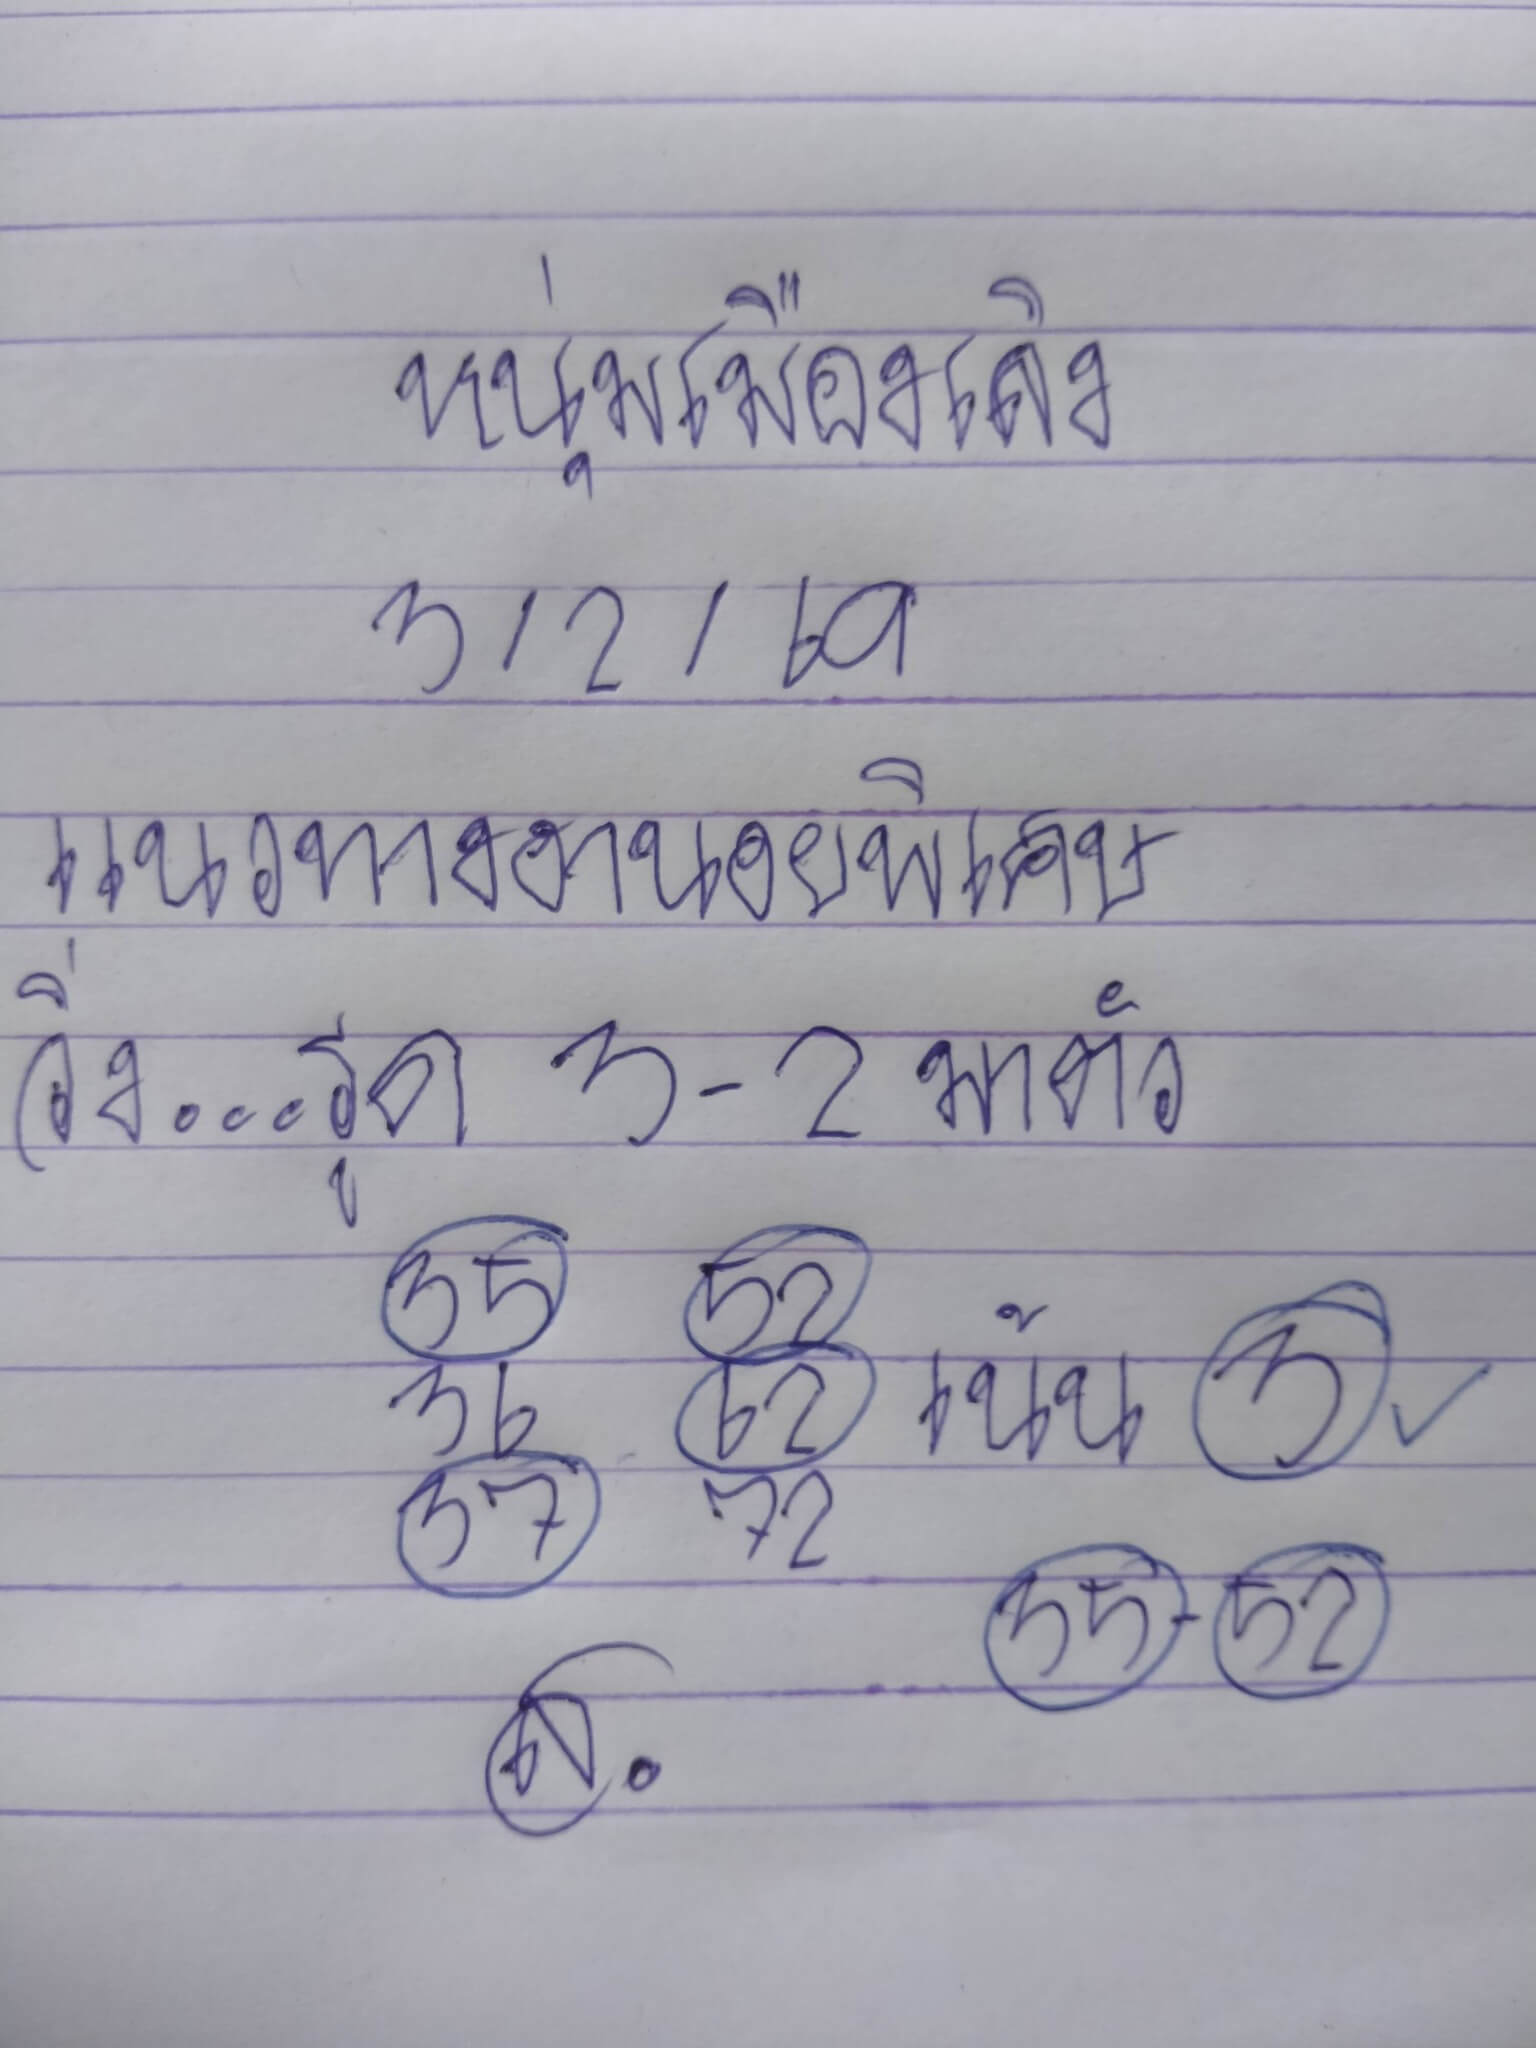 หนุ่มเมืองเลิง
3/2/69
แนวทางฮานอยพิเศษ
วิ่ง...รูด 3-2 มาตัว
35 52
36 62 เน้น 3 ✓
37 72
35-52